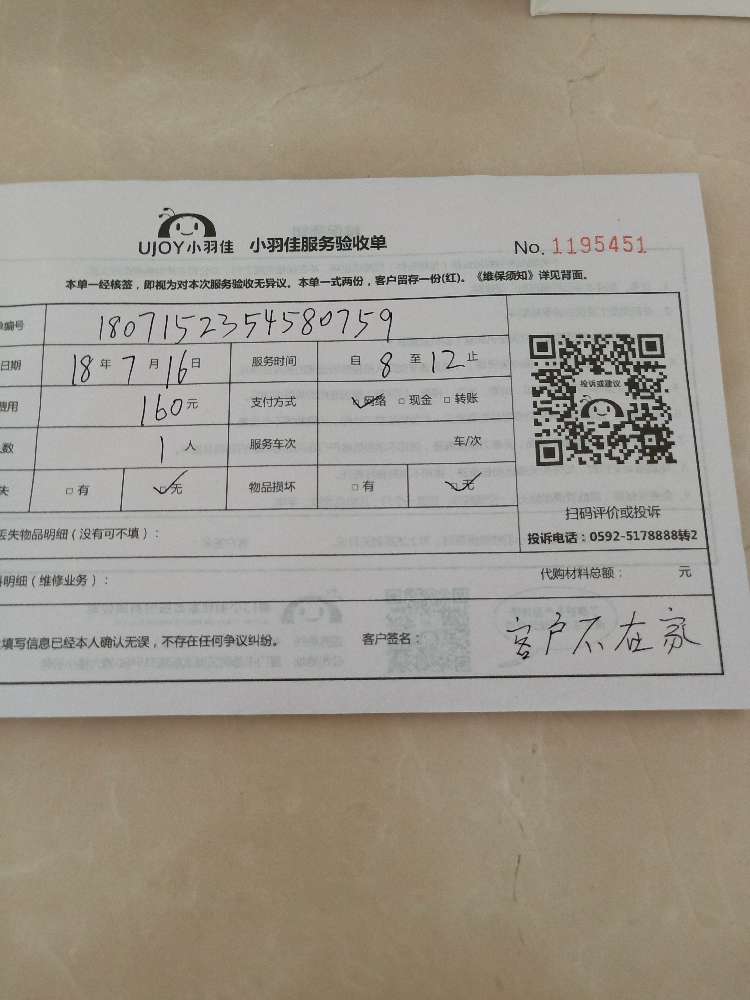 UJOY小羽佳 小羽佳服务验收单 No. 1195451
本单一经核签，即视为对本次服务验收无异议。本单一式两份，客户留存一份(红)。《维保须知》详见背面。
编号 1807152354580759
日期 18 年 7 月 16 日 服务时间 自 8 至 12 止
费用 160 元 支付方式 □ 网络 □ 现金 □ 转账
人数 1 人 服务车次 车/次
失 □ 有 □ 无 物品损坏 □ 有 □ 无
投诉或建议
扫码评价或投诉
投诉电话：0592-5178888转2
丢失物品明细（没有可不填）：
明细（维修业务）： 代购材料总额： 元
填写信息已经本人确认无误，不存在任何争议纠纷。 客户签名： 客户不在家